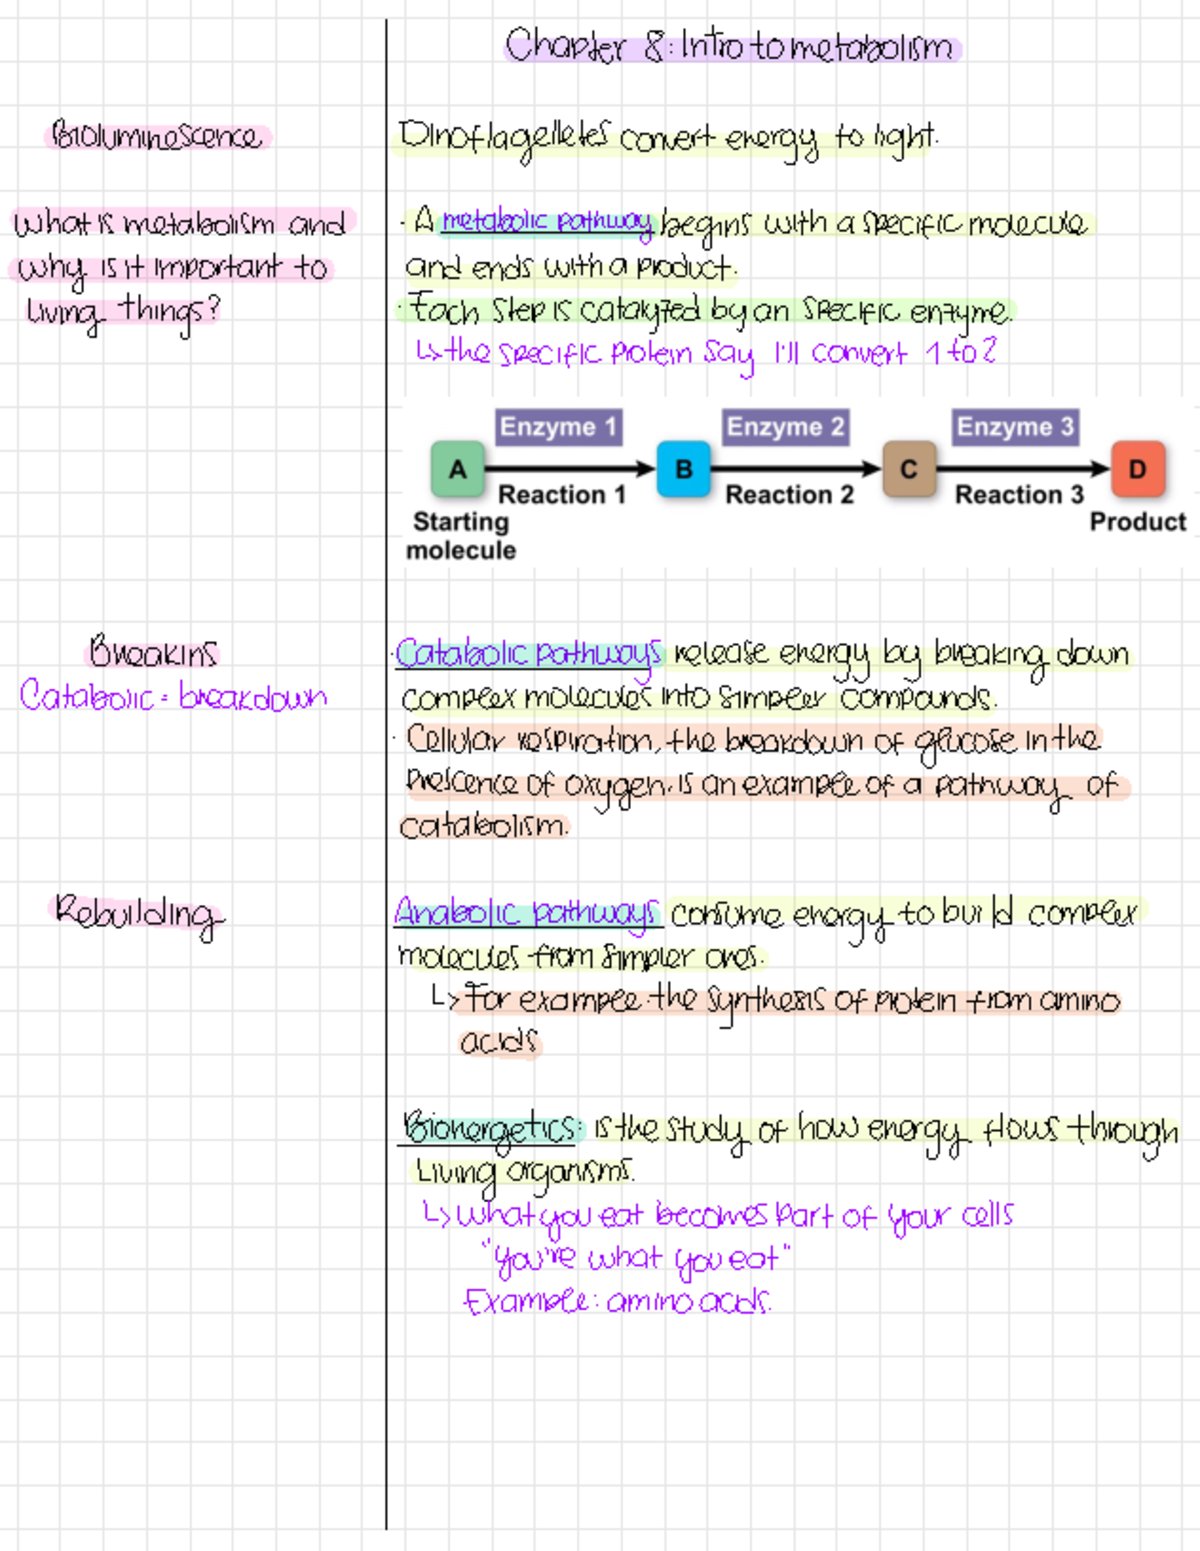 Chapter 8: Intro to metabolism
Bioluminescence
Dinoflagelletes convert energy to light.
What is metabolism and
why is it important to
living things?
· A metabolic pathway begins with a specific molecule
and ends with a product.
· Each step is catalyzed by an specific enzyme.
↳ the specific protein say I'll convert 1 to 2
Enzyme 1 Enzyme 2 Enzyme 3
A B C D
Reaction 1 Reaction 2 Reaction 3
Starting
molecule
Product
Breakins
Catabolic = breakdown
· Catabolic pathways release energy by breaking down
complex molecules into simpler compounds.
· Cellular respiration, the breakdown of glucose in the
prescence of oxygen, is an example of a pathway of
catabolism.
Rebuilding
Anabolic pathways consume energy to build complex
molecules from simpler ones.
↳ For example: the synthesis of protein from amino
acids
Bionergetics: is the study of how energy flows through
living organisms.
↳ what you eat becomes part of your cells
"you're what you eat"
Example: amino acids.